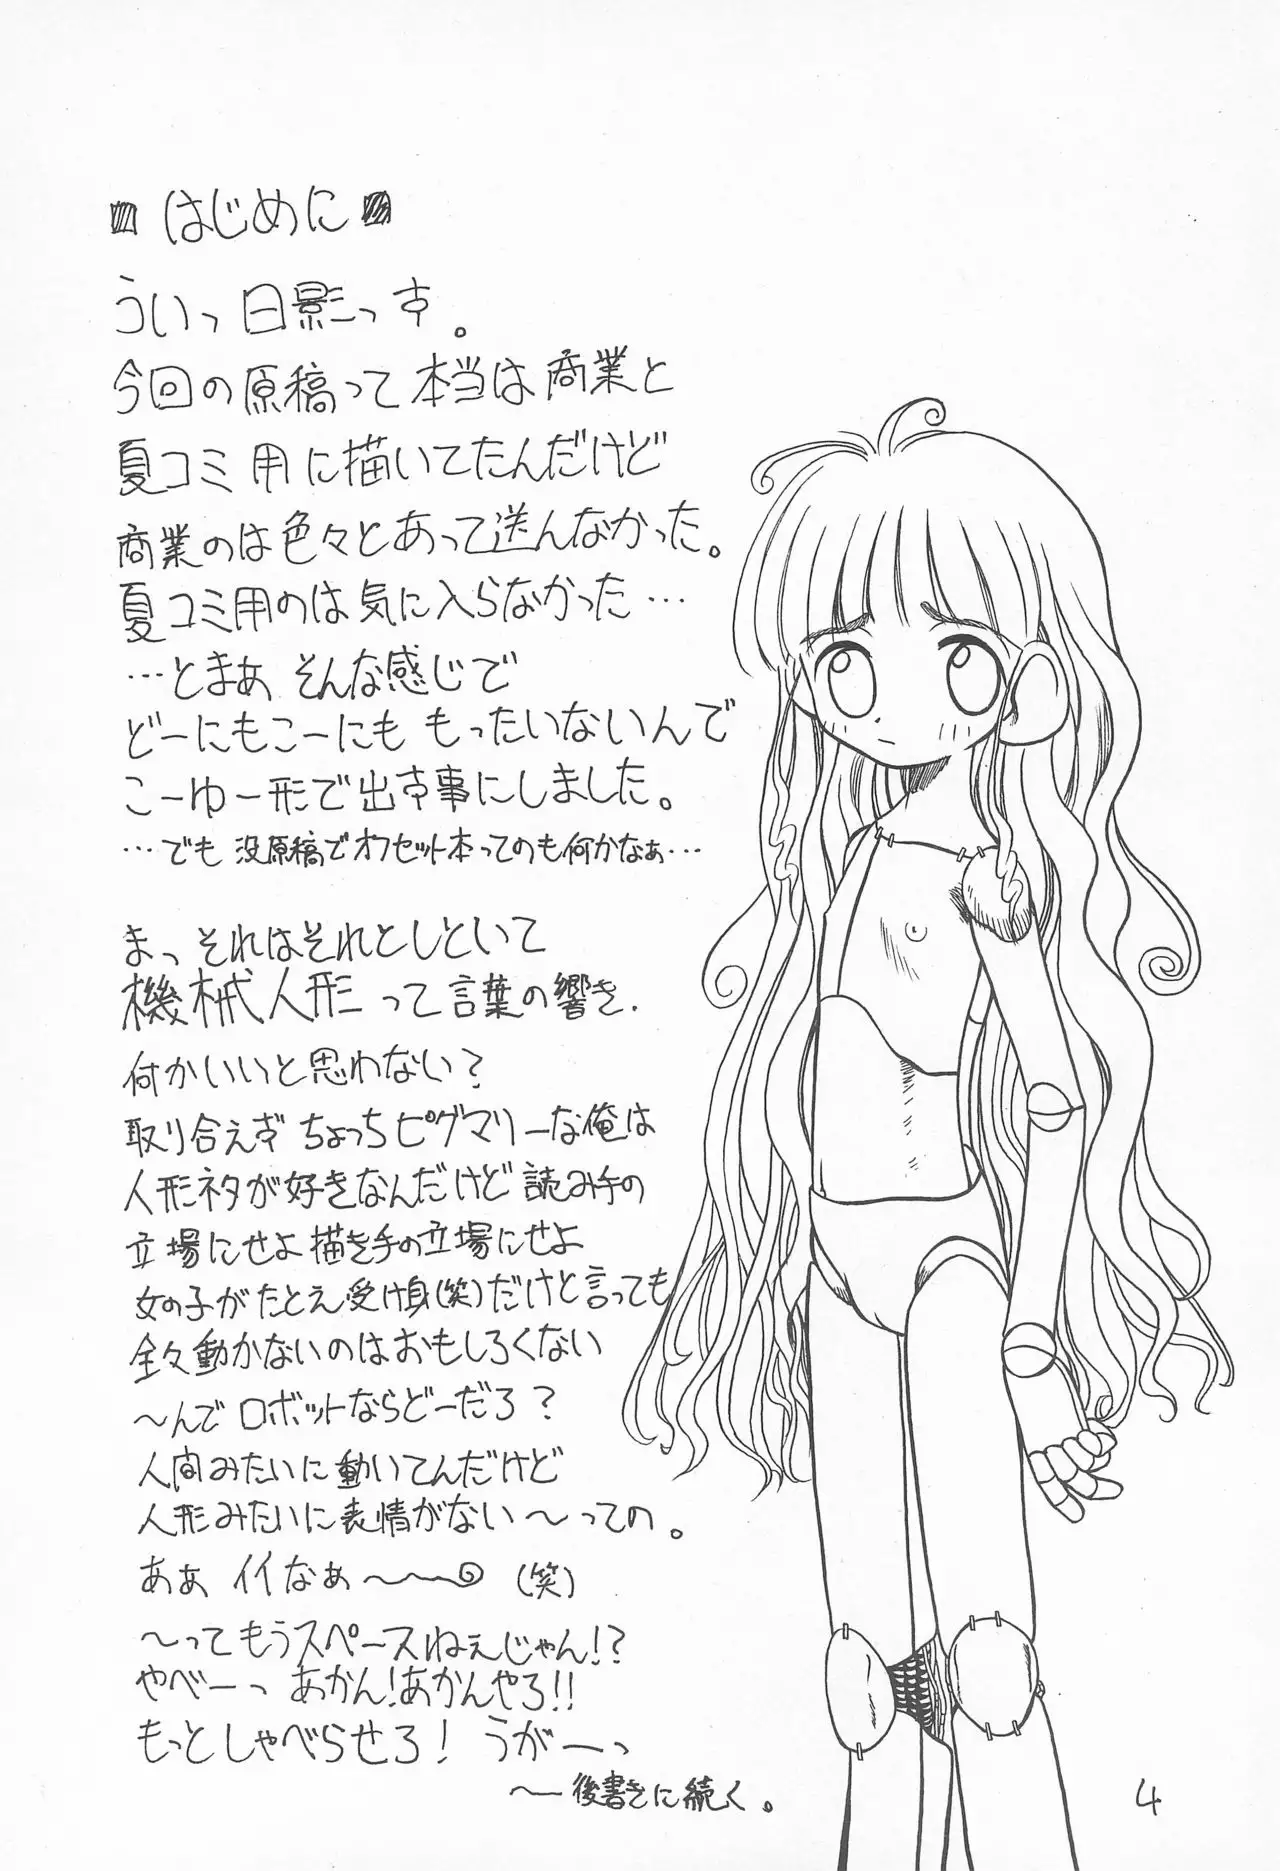 はじめに
ういっ日影っす。
今回の原稿って本当は商業と
夏コミ用に描いてたんだけど
商業のは色々とあって送んなかった。
夏コミ用のは気に入らなかった…
…とまぁ そんな感じで
どーにもこーにも もったいないんで
こーゆー形で出す事にしました。
…でも 没原稿でオフセット本ってのも何かなぁ…
まっそれはそれとしといて
機械人形って言葉の響き、
何かいいと思わない？
取り合えず ちょっちピグマリーな俺は
人形ネタが好きなんだけど読み手の
立場にせよ描き手の立場にせよ
女の子がたとえ受け身(笑)だけと言っても
全々動かないのはおもしろくない
〜んで ロボットならどーだろ？
人間みたいに動いてんだけど
人形みたいに表情がない〜っての。
あぁ イイなぁ〜〜 (笑)
〜ってもうスペースねぇじゃん!？
やべーっ あかん!あかんやろ!!
もっとしゃべらせろ! うがーっ
〜後書きに続く。
4